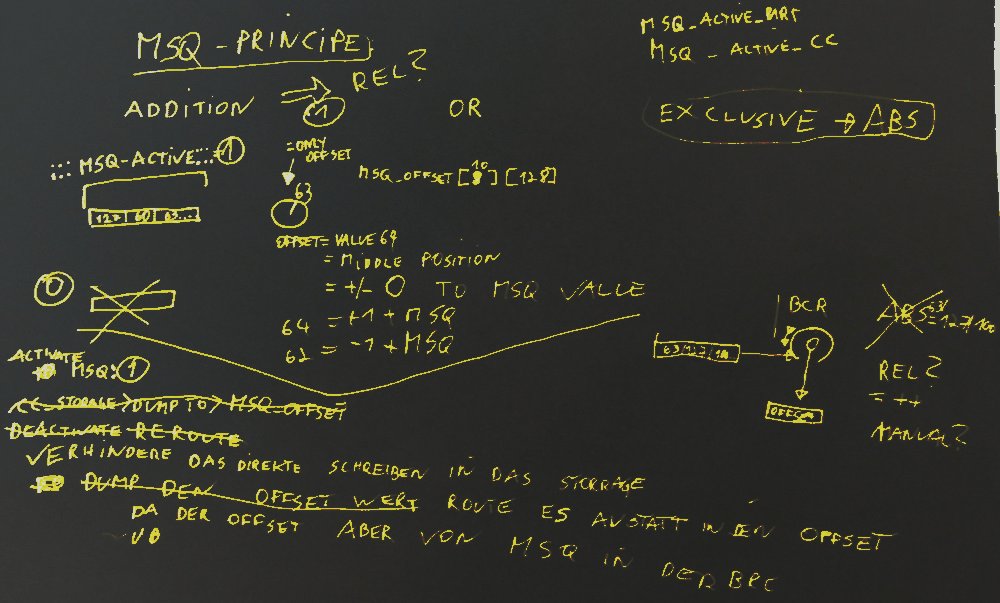 MSQ_PRINCIPE
MSQ_ACTIVE_
MSQ_ACTIVE_CC
ADDITION ⇒ REL?
1
OR
EXCLUSIVE → ABS
= ONLY OFFSET
MSQ-ACTIVE 1
MSQ_OFFSET [10] [128]
63
127 60 63...
OFFSET = VALUE 64
= MIDDLE POSITION
= +/- 0 TO MSQ VALUE
64 = +1 + MSQ
62 = -1 + MSQ
0
BCR
ABS
REL?
= ++
MANUAL?
63 127 10
OFFSET
ACTIVATE MSQ: 1
CC_STORAGE > DUMP TO > MSQ_OFFSET
DEACTIVATE REROUTE
VERHINDERE DAS DIREKTE SCHREIBEN IN DAS STORRAGE
DUMP DEN OFFSET WERT ROUTE ES ANSTATT IN DEN OFFSET
DA DER OFFSET ABER VON MSQ IN DER BPC